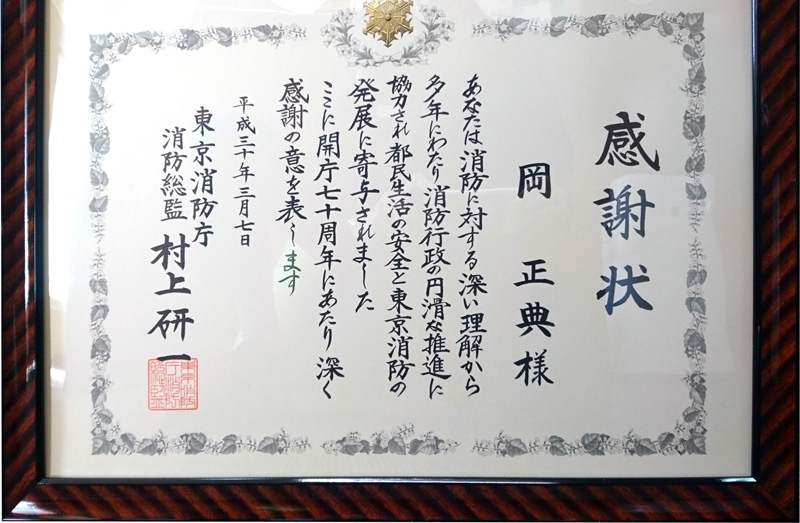 感謝状
岡正典様
あなたは消防に対する深い理解から
多年にわたり消防行政の円滑な推進に
協力され都民生活の安全と東京消防の
発展に寄与されました
ここに開庁七十周年にあたり深く
感謝の意を表します
平成三十年三月七日
東京消防庁
消防総監 村上研一